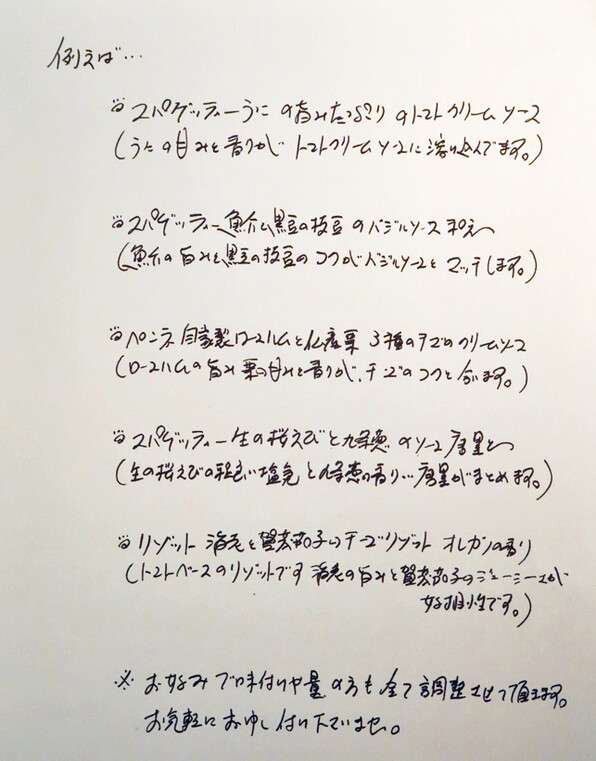 例えば…
スパゲッティーうにの旨みたっぷりのトマトクリームソース
(うにの甘みと香りがトマトクリームソースに溶け込んでます。)
スパゲッティー魚介と黒豆の枝豆のバジルソース和え
(魚介の旨みと黒豆の枝豆のコクがバジルソースとマッチします。)
ペンネ 自家製ロースハムと仏産栗 3種のチーズのクリームソース
(ロースハムの旨み栗の甘みと香りが、チーズのコクと合います。)
スパゲッティー生の桜えびと九条葱のソース 唐墨と
(生の桜えびの程良い塩気と九条葱の香り…唐墨がまとめます。)
リゾット 海老と賀茂茄子のチーズリゾット オレガノの香り
(トマトベースのリゾットです 海老の旨みと賀茂茄子のジューシーさが
好相性です。)
※ お好みで味付けや量の方も全て調整させて頂きます。
お気軽にお申し付け下さいませ。